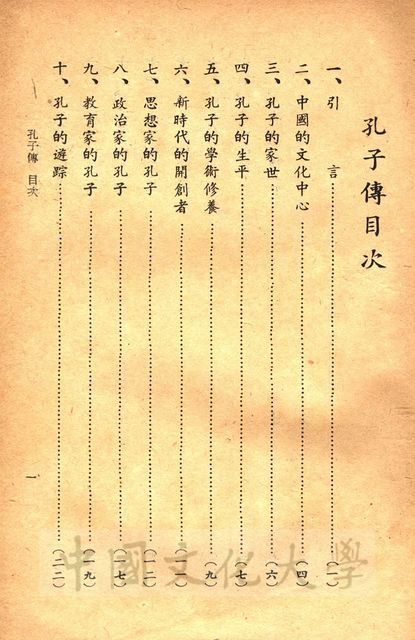 孔子傳目次
一、引　言……（一）
二、中國的文化中心……（四）
三、孔子的家世……（六）
四、孔子的生平……（七）
五、孔子的學術修養……（九）
六、新時代的開創者……（一一）
七、思想家的孔子……（一二）
八、政治家的孔子……（一七）
九、教育家的孔子……（一九）
十、孔子的遊踪……（二二）
孔子傳　目次
一
中國文化大學